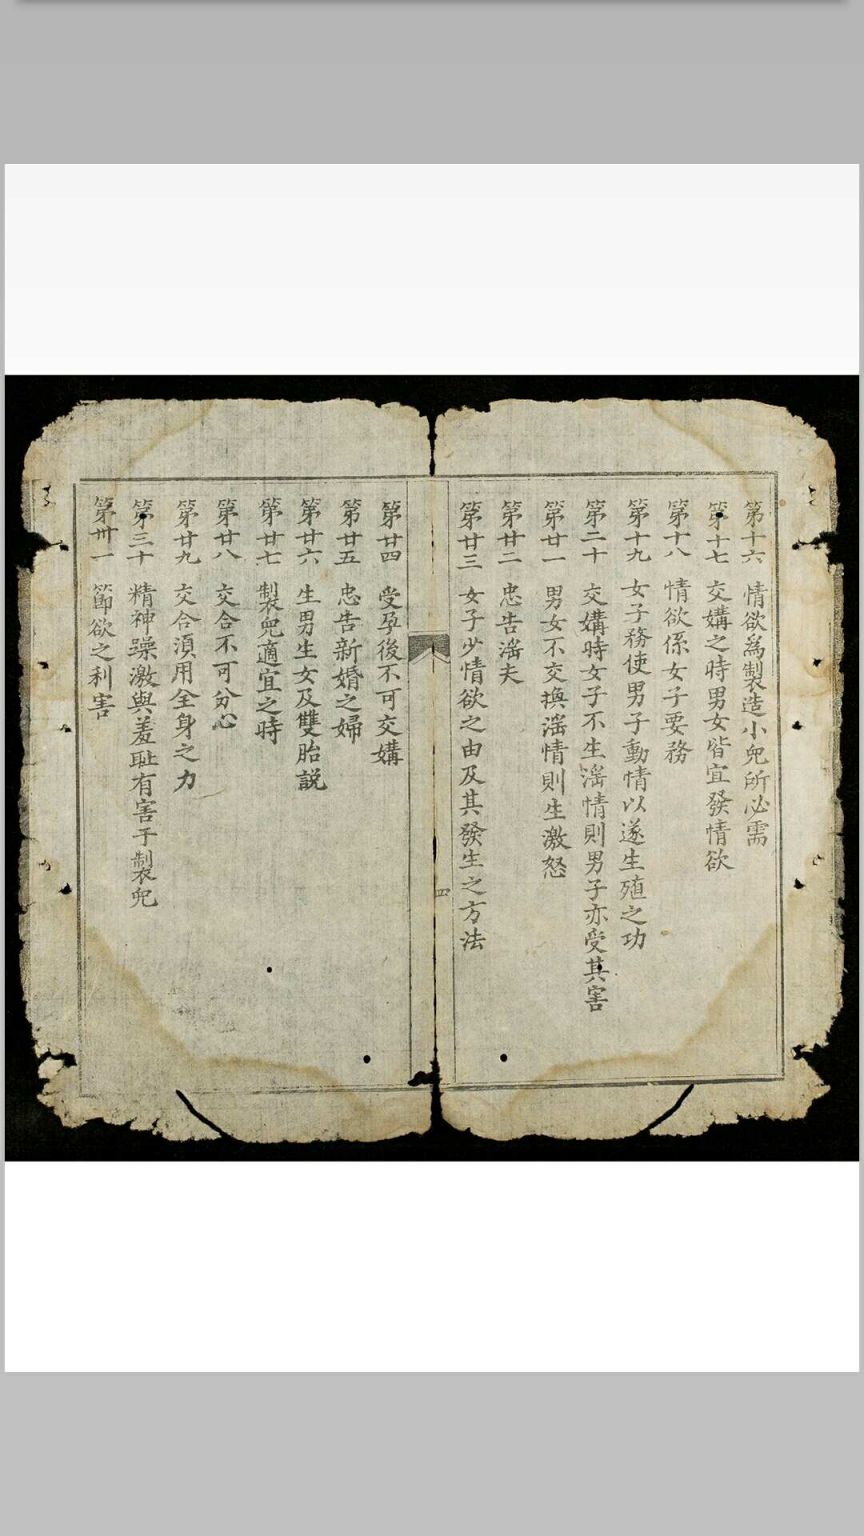 第十六 情欲爲製造小兒所必需
第十七 交媾之時男女皆宜發情欲
第十八 情欲係女子要務
第十九 女子務使男子動情以遂生殖之功
第二十 交媾時女子不生滛情則男子亦受其害
第廿一 男女不交換滛情則生激怒
第廿二 忠告滛夫
第廿三 女子少情欲之由及其發生之方法
四
第廿四 受孕後不可交媾
第廿五 忠告新婚之婦
第廿六 生男生女及雙胎説
第廿七 製兒適宜之時
第廿八 交合不可分心
第廿九 交合湏用全身之力
第三十 精神躁激與羞耻有害于製兒
第卅一 節欲之利害